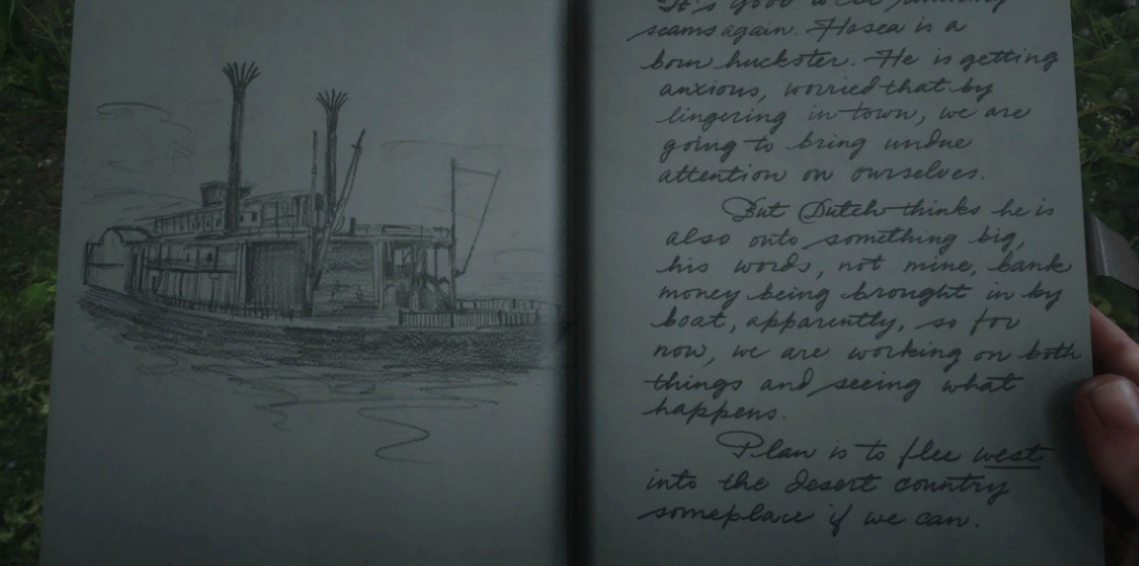 "It's good to be running
scams again. Hosea is a
born huckster. He is getting
anxious, worried that by
lingering in town, we are
going to bring undue
attention on ourselves.
But Dutch thinks he is
also onto something big,
his words, not mine, bank
money being brought in by
boat, apparently, so for
now, we are working on both
things and seeing what
happens.
Plan is to flee west
into the desert country
someplace if we can.